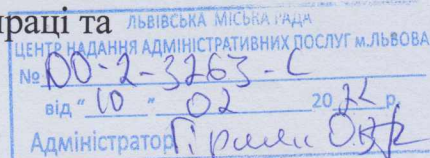 праці та
ЛЬВІВСЬКА МІСЬКА РАДА
ЦЕНТР НАДАННЯ АДМІНІСТРАТИВНИХ ПОСЛУГ м.ЛЬВОВА
№ ДО-2-3263-С
від "10" 02 2022 р.
Адміністратор